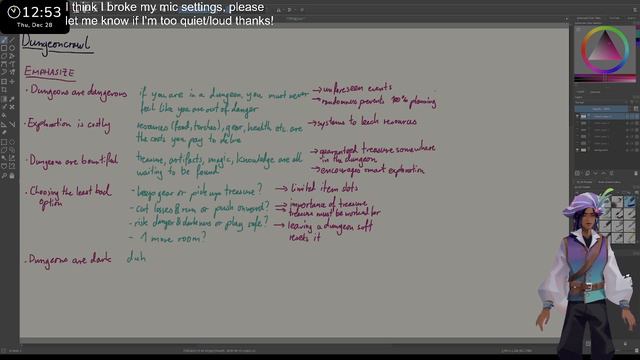 12:53
Thu, Dec 28
I think I broke my mic settings, please
let me know if I'm too quiet/loud thanks!
Dungeoncrawl
EMPHASIZE
· Dungeons are dangerous
if you are in a dungeon, you must never
feel like you are out of danger
→ unforeseen events
→ randomness prevents 100% planning
· Exploration is costly
resources (food, torches), gear, health etc are
the costs you pay to delve
→ systems to leech resources
· Dungeons are bountiful
treasure, artifacts, magic, knowledge are all
waiting to be found
→ guaranteed treasure somewhere
in the dungeon
→ encourages smart exploration
· Choosing the least bad
option
- keep gear or pick up treasure?
→ limited item slots
- cut losses & run or push onward?
→ importance of treasure,
treasure must be worked for
- risk danger & darkness or play safe?
→ leaving a dungeon soft
resets it
- 1 more room?
· Dungeons are dark
duh